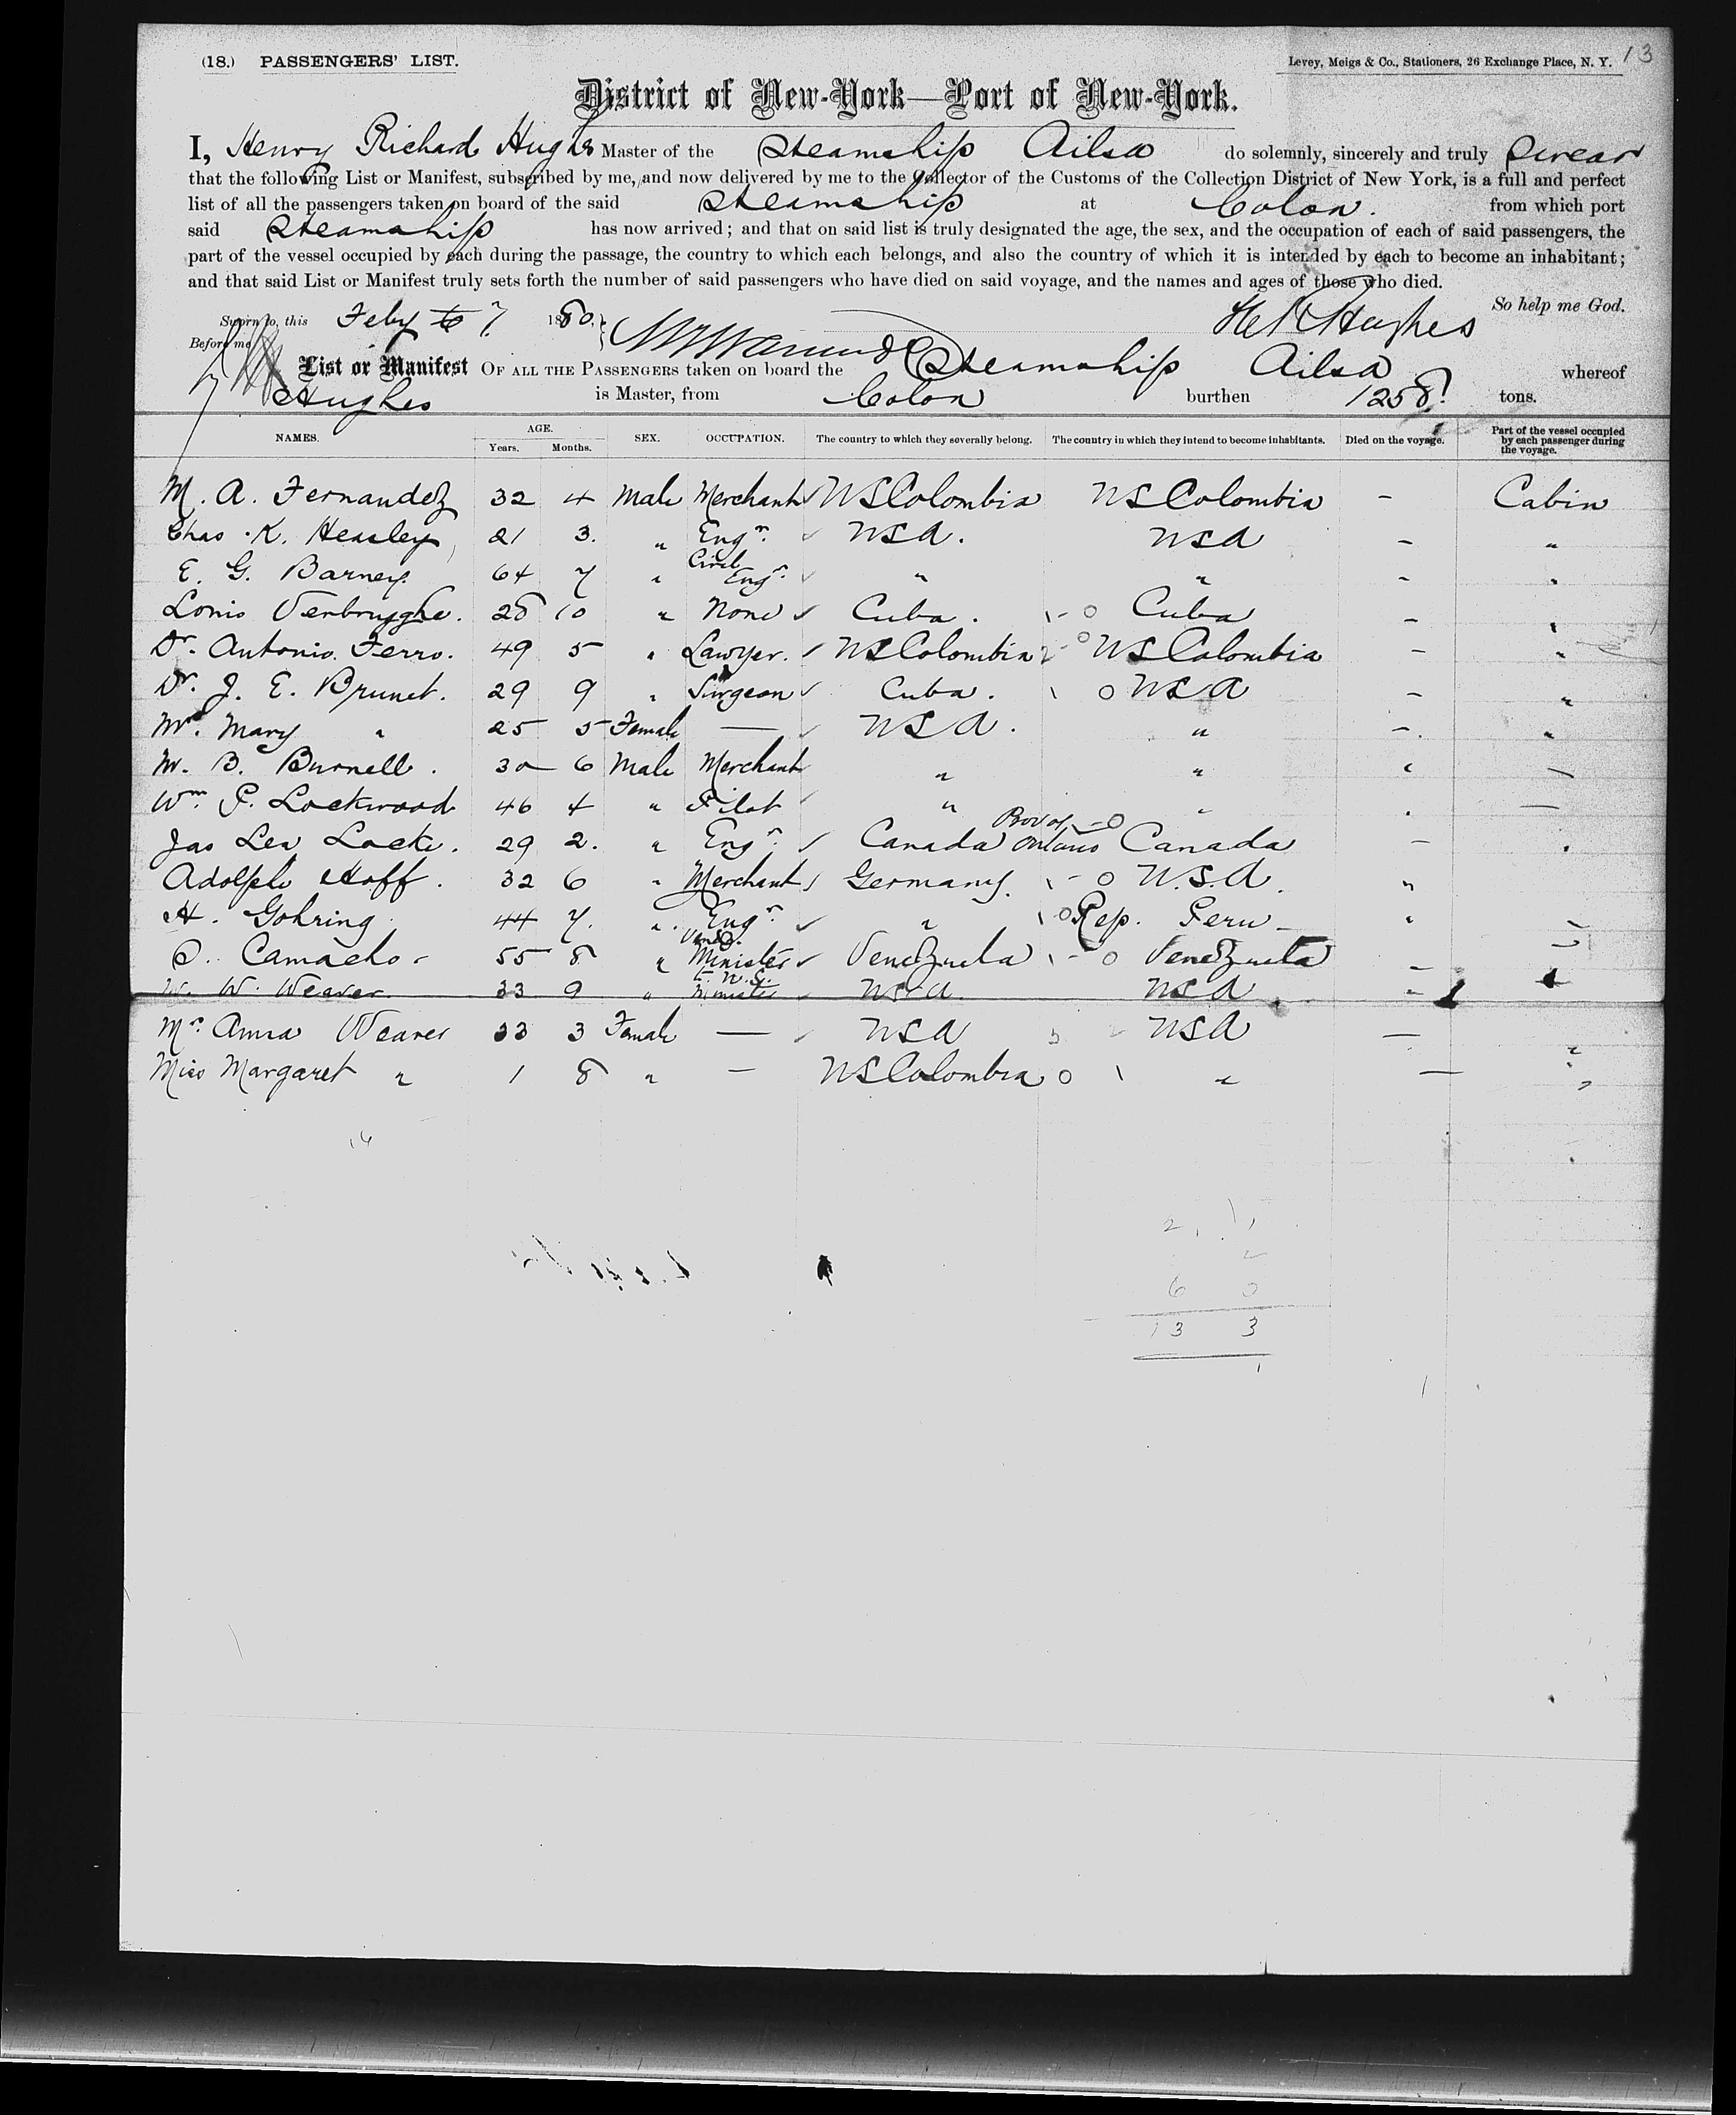 (18.) PASSENGERS' LIST. Levey, Meigs & Co., Stationers, 26 Exchange Place, N. Y. 13
District of New-York—Port of New-York.
I, Henry Richard Hughes Master of the Steamship Ailsa do solemnly, sincerely and truly Swear
that the following List or Manifest, subscribed by me, and now delivered by me to the Collector of the Customs of the Collection District of New York, is a full and perfect
list of all the passengers taken on board of the said Steamship at Colon. from which port
said Steamship has now arrived; and that on said list is truly designated the age, the sex, and the occupation of each of said passengers, the
part of the vessel occupied by each during the passage, the country to which each belongs, and also the country of which it is intended by each to become an inhabitant;
and that said List or Manifest truly sets forth the number of said passengers who have died on said voyage, and the names and ages of those who died.
So help me God.
Sworn to, this Feby 7 1880. H R Hughes
Before me
List or Manifest OF ALL THE PASSENGERS taken on board the Steamship Ailsa whereof
Hughes is Master, from Colon burthen 1258 tons.
NAMES. AGE. Years. Months. SEX. OCCUPATION. The country to which they severally belong. The country in which they intend to become inhabitants. Died on the voyage. Part of the vessel occupied by each passenger during the voyage.
M. A. Fernandez 32 4 Male Merchant US Colombia US Colombia - Cabin
Chas. K. Heasley 21 3. " Engr. USA. USA - "
E. G. Barney. 64 7 " Civil Engr. " " - "
Louis Verbrugghe. 28 10 " None Cuba. Cuba - "
Dr. Antonio Ferro. 49 5 " Lawyer. US Colombia US Colombia - "
Dr. J. E. Brunet. 29 9 " Surgeon Cuba. USA - "
Mrs. Mary " 25 5 Female — USA. " - "
W. B. Burnell. 30 6 Male Merchant " " "
Wm. P. Lockwood 46 4 " Pilot " "
Jas Lea Locke. 29 2. " Engr. Canada Prov of Ontario Canada -
Adolph Hoff. 32 6 " Merchant Germany. U.S.A. "
H. Gohring 44 7. " Engr. " Rep. Peru "
S. Camacho 55 8 " Minister to U.S. Venezuela Venezuela -
W. W. Weaver 33 9 " Minister USA. USA -
Mrs. Anna Weaver 33 3 Female — USA USA — "
Miss Margaret " 1 8 " - US Colombia " — "
16
6 0
13 3